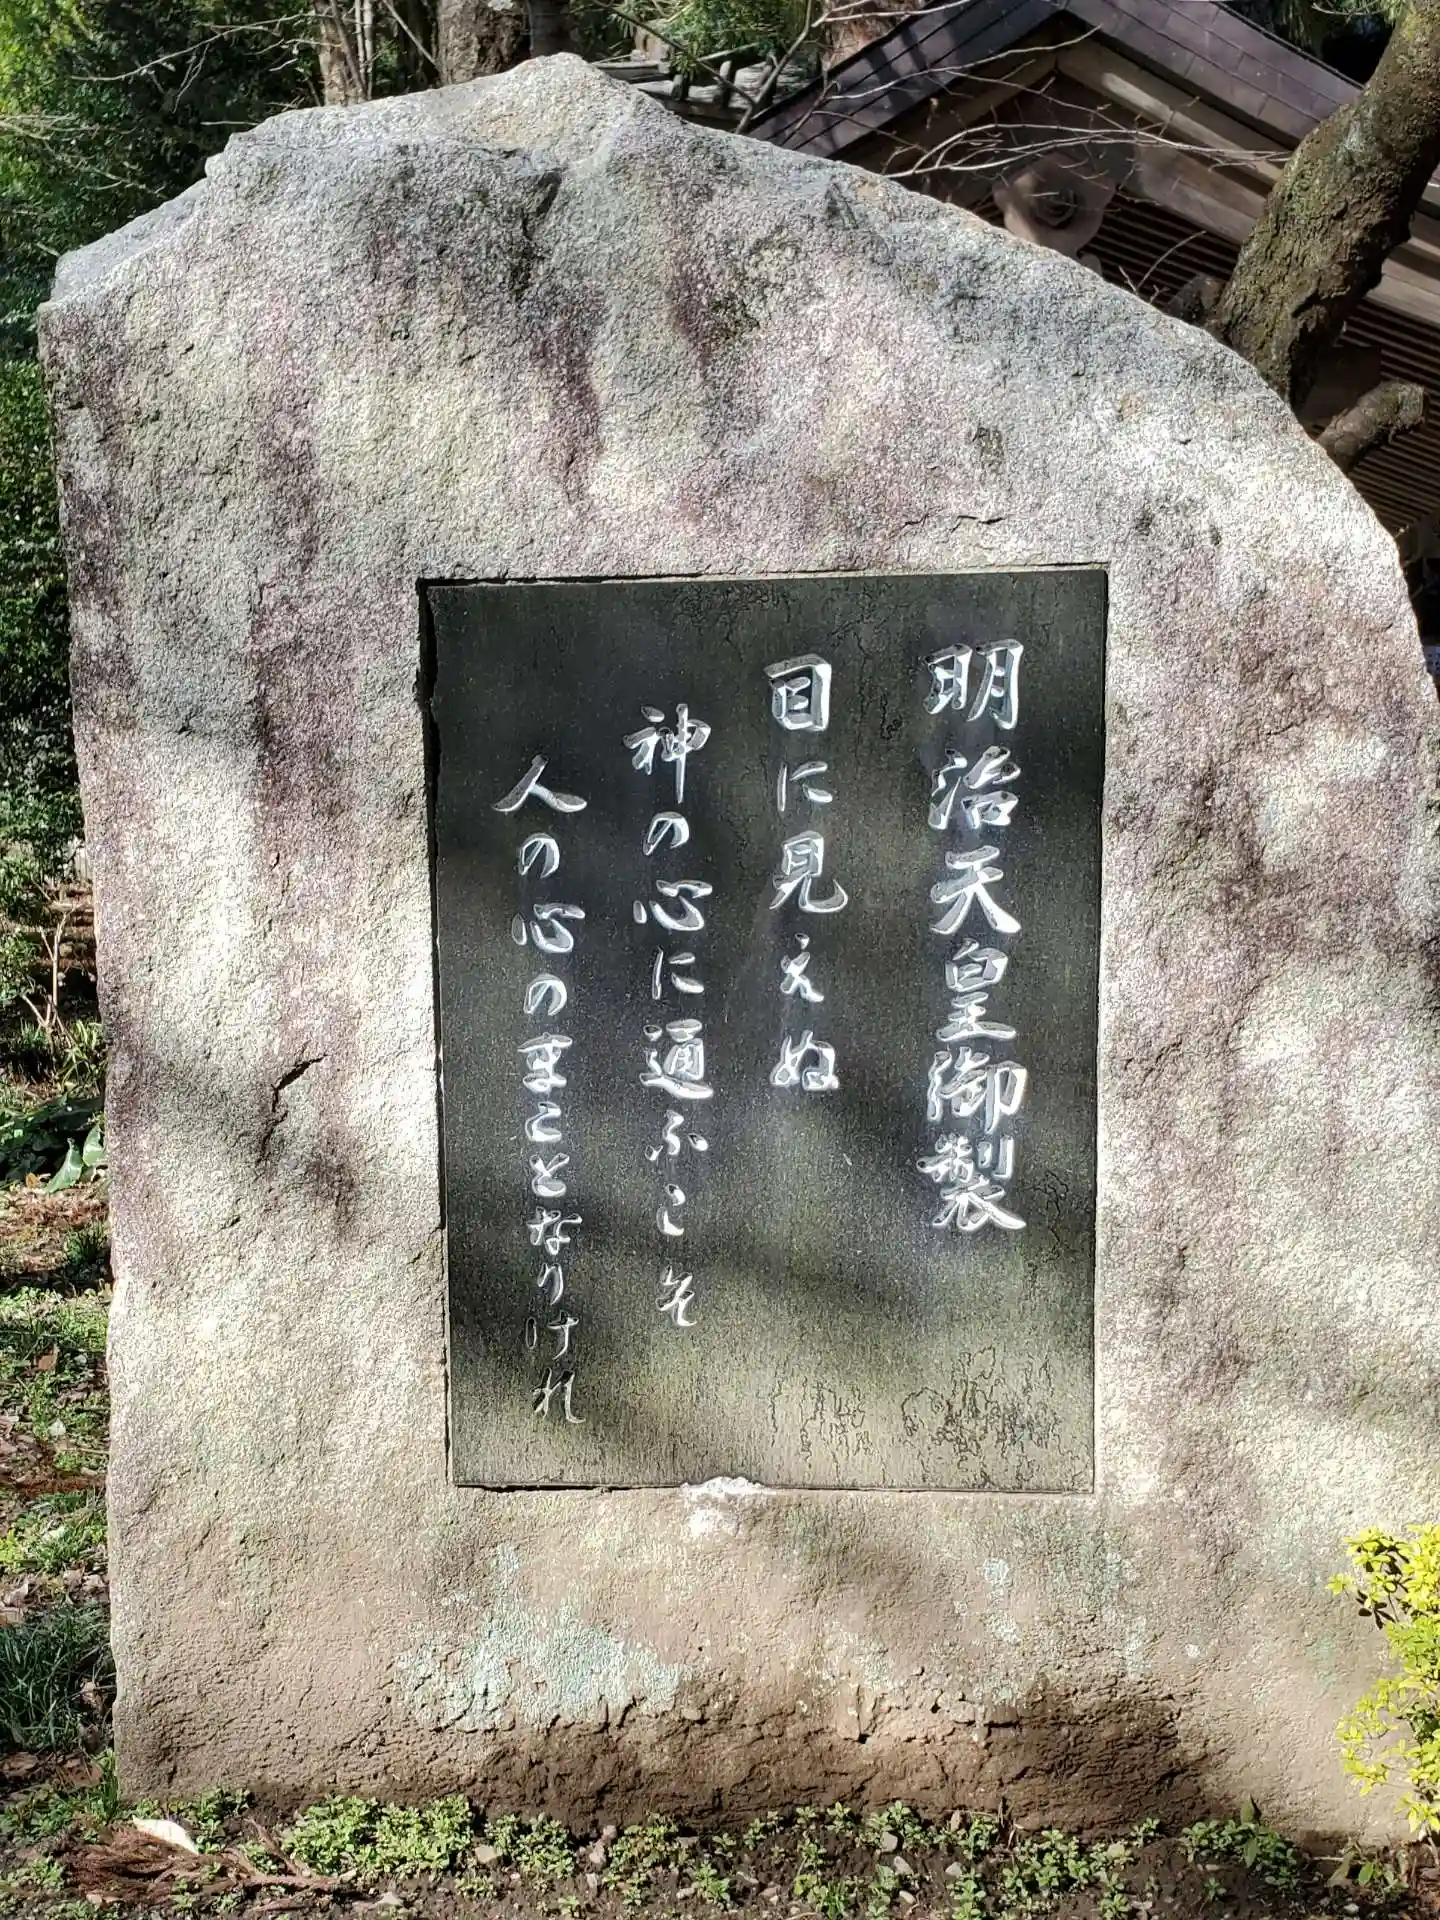 明治天皇御製
目に見えぬ
神の心に通ふこそ
人の心のまことなりけれ